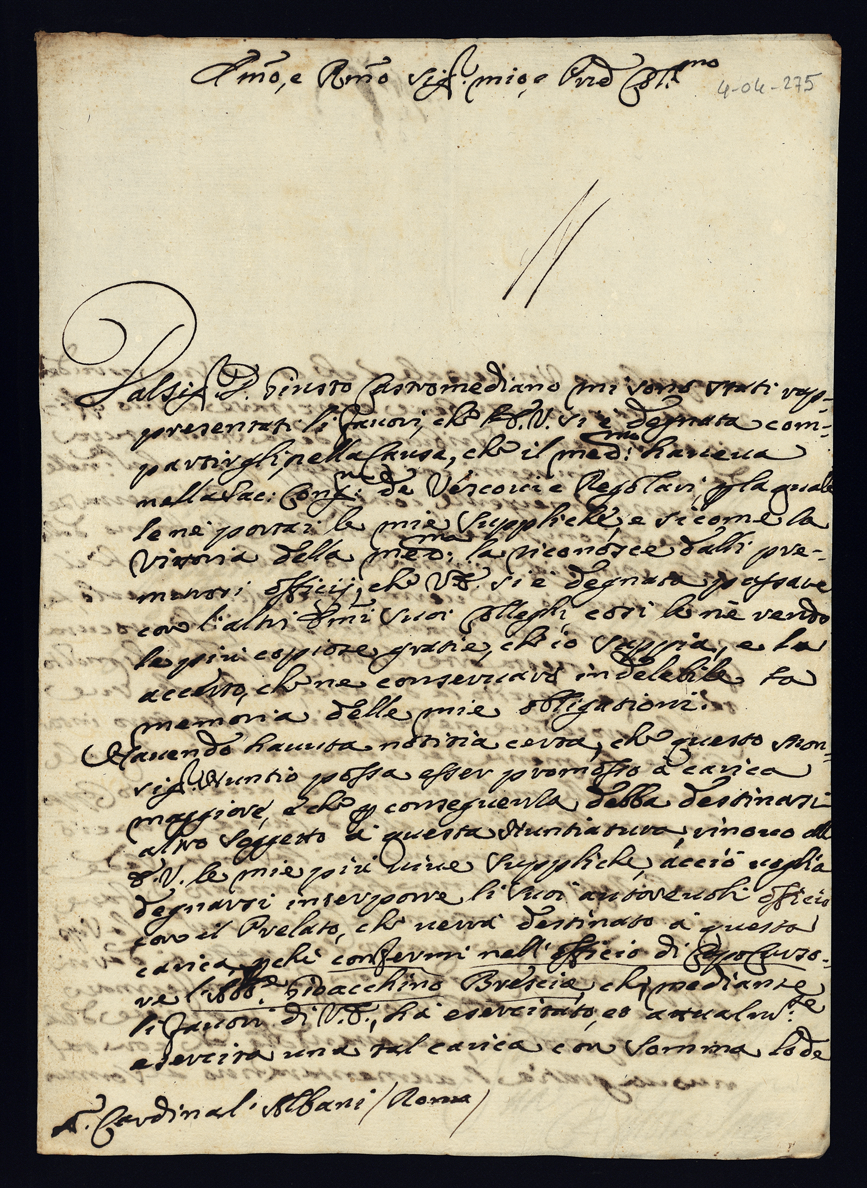 Em̃o, e Rm̃o Sig.r mio, e Prõ Col.mo
4-04-275
Dal Sig.r D. Giusto Castromediano mi sono stati rap-
presentati li favori, che V.E. si è degnata com-
partirgli nella Causa, che il med.mo haveva
nella Sac. Cong.ne de Vescovi e Regolari p la quale
le ne portai le mie Suppliche, e sicome la
Vittoria della med.ma la riconosce dalli pre-
murosi officij, che V.E. si è degnata passare
con l'altri Em̃i Suoi Colleghi così le nè rendo
le più copiose gratie, che io sappia, e la
accerto, che ne conservarò indelebile la
memoria delle mie obligationi.
Havendo havuta notitia certa, che questo Mon-
sig.r Nuntio possa esser promosso à carica
maggiore, e che p conseguenza debba destinarsi
altro Soggetto à questa Nuntiatura, rinovo all'
E.V. le mie più vive Suppliche, acciò voglia
degnarsi interporre li suoi autorevoli officij
con il Prelato, che verrà destinato à questa
carica, p chè confermi nell'officio di Capo Curso-
re l'Abb.e Gioacchino Brescia, che mediante
li favori di V.E., hà esercitato, et attualm.te
esercita una tal carica con somma lode
S.r Cardinal Albani / Roma /